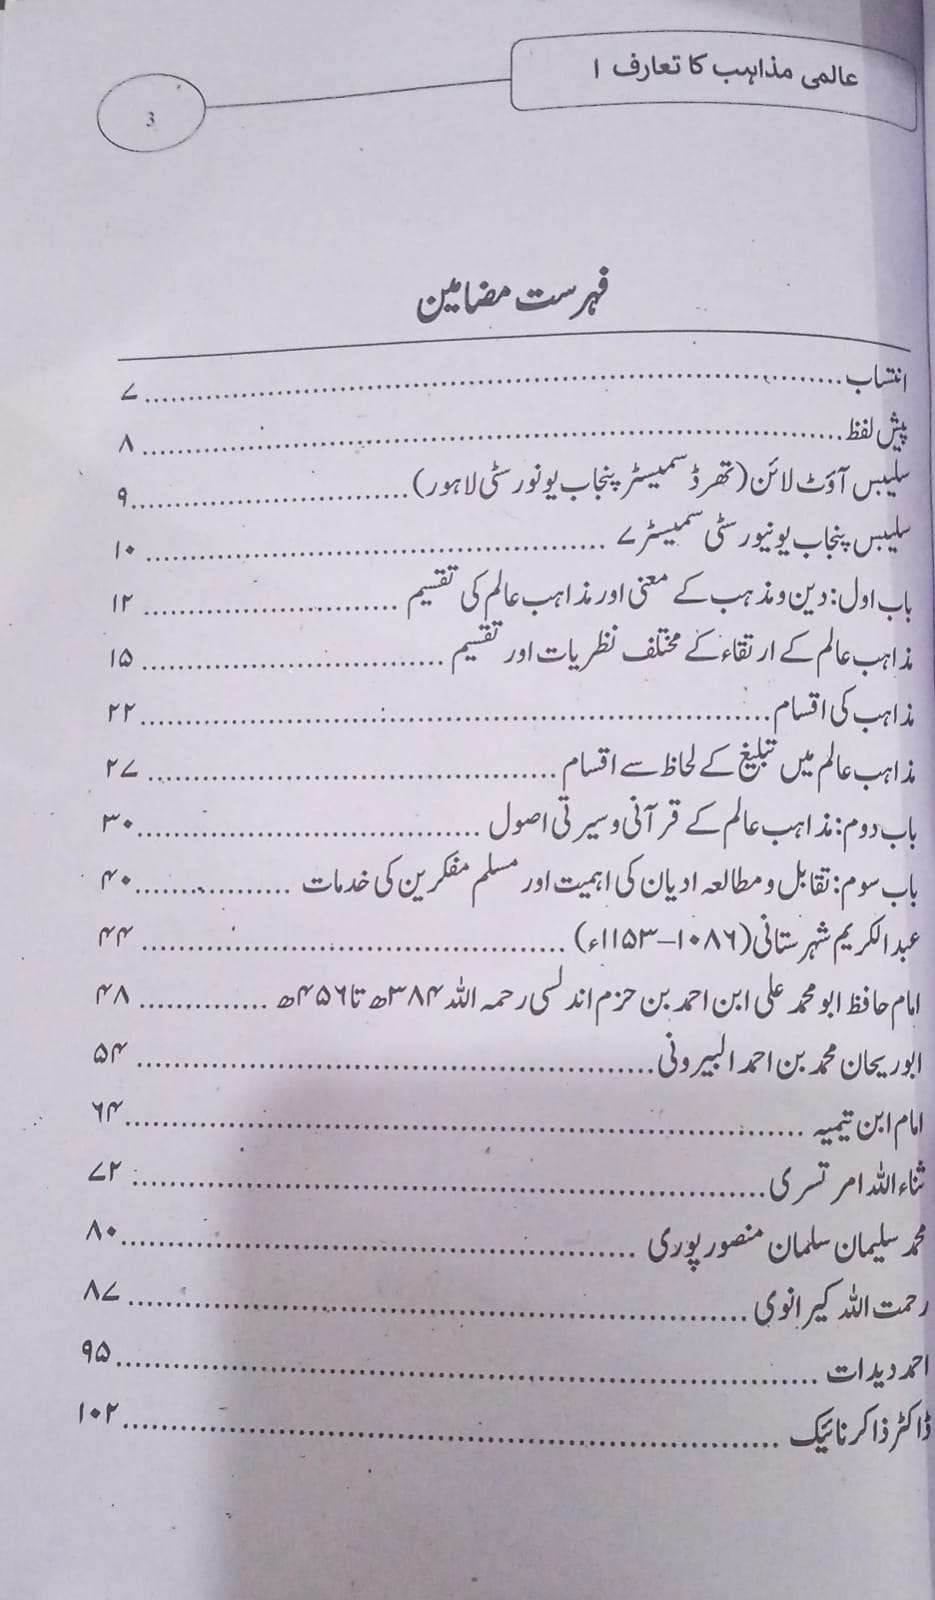 عالمی مذاہب کا تعارف ۱
3
فہرست مضامین
انتساب ........ ۷
پیش لفظ ........ ۸
سلیبس آؤٹ لائن (تھرڈ سمیسٹر پنجاب یونورسٹی لاہور) ........ ۹
سلیبس پنجاب یونیورسٹی سمیسٹر ۷ ........ ۱۰
باب اول: دین و مذہب کے معنی اور مذاہب عالم کی تقسیم ........ ۱۲
مذاہب عالم کے ارتقاء کے مختلف نظریات اور تقسیم ........ ۱۵
مذاہب کی اقسام ........ ۲۲
مذاہب عالم میں تبلیغ کے لحاظ سے اقسام ........ ۲۷
باب دوم: مذاہب عالم کے قرآنی و سیرتی اصول ........ ۳۰
باب سوم: تقابل و مطالعہ ادیان کی اہمیت اور مسلم مفکرین کی خدمات ........ ۴۰
عبد الکریم شہرستانی (۱۰۸۶–۱۱۵۳ء) ........ ۴۴
امام حافظ ابو محمد علی ابن احمد بن حزم اندلسی رحمہ اللہ ۳۸۴ھ تا ۴۵۶ھ ........ ۴۸
ابو ریحان محمد بن احمد البیرونی ........ ۵۴
امام ابن تیمیہ ........ ۶۴
ثناء اللہ امرتسری ........ ۷۲
محمد سلیمان سلمان منصور پوری ........ ۸۰
رحمت اللہ کیرانوی ........ ۸۷
احمد دیدات ........ ۹۵
ڈاکٹر ذاکر نائیک ........ ۱۰۲